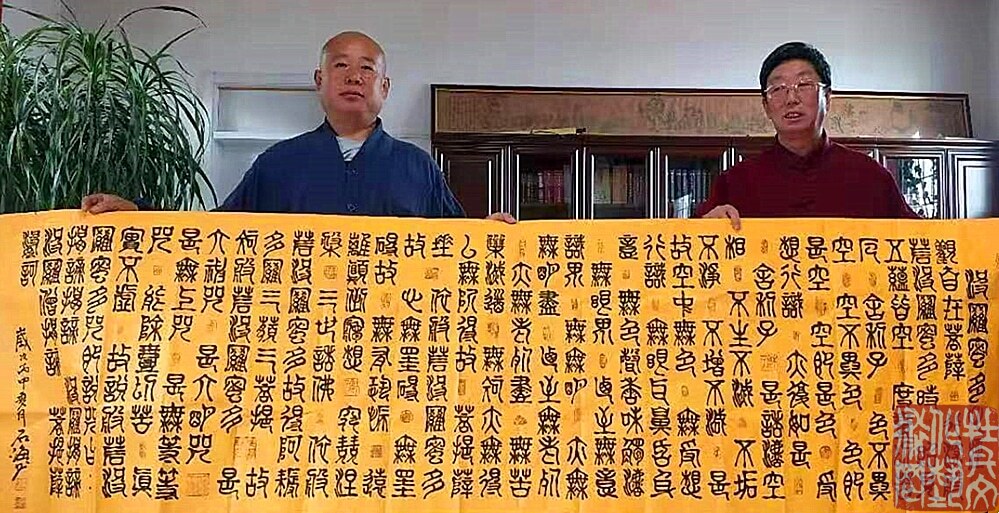 波羅蜜多
觀自在菩薩
若波羅蜜多時
五蘊皆空 度
厄 舍利子 色不異
空 空不異色 色即
是空 空即是色 受
想行識 亦復如是
舍利子 是諸法空
相 不生不滅 不垢
不淨 不增不減 是
故空中無色 無受想
行識 無眼耳鼻舌身
意 無色聲香味觸法
無眼界 乃至無
識界 無
無明盡 乃至無老死
亦無老死盡 無苦
集滅道 無智亦無得
以無所得故 菩提薩
埵 依般若波羅蜜多
故 心無罣礙 無罣
礙故 無有恐怖 遠
離顛倒夢想 究竟涅
槃 三世諸佛 依般
若波羅蜜多故 得阿耨
多羅三藐三菩提 故
知般若波羅蜜多 是
大神咒 是大明咒
是無上咒 是無等等
咒 能除一切苦 真
實不虛 故說般若波
羅蜜多咒 即說咒曰
揭諦揭諦 波羅揭諦
波羅僧揭諦 菩提薩
婆訶
歲次丙申